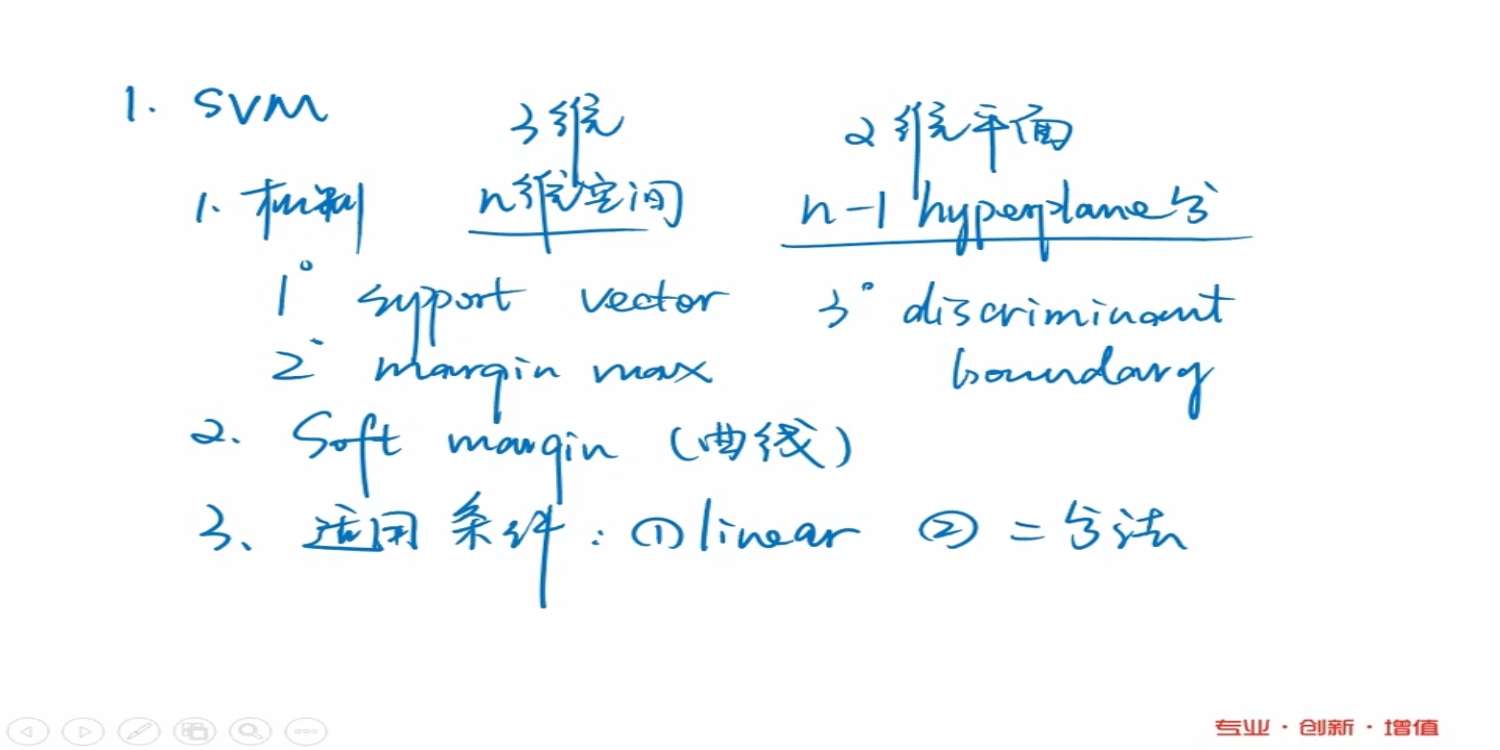 1. SVM
3维 2维平面
1. 机制 n维空间 n-1 hyperplane分
1° support vector 3° discriminant
2° margin max boundary
2. Soft margin (曲线)
3、适用条件：① linear ② 二分法
专业·创新·增值